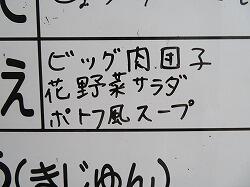 え
ビッグ肉団子
花野菜サラダ
ポトフ風スープ
(きじゅん)